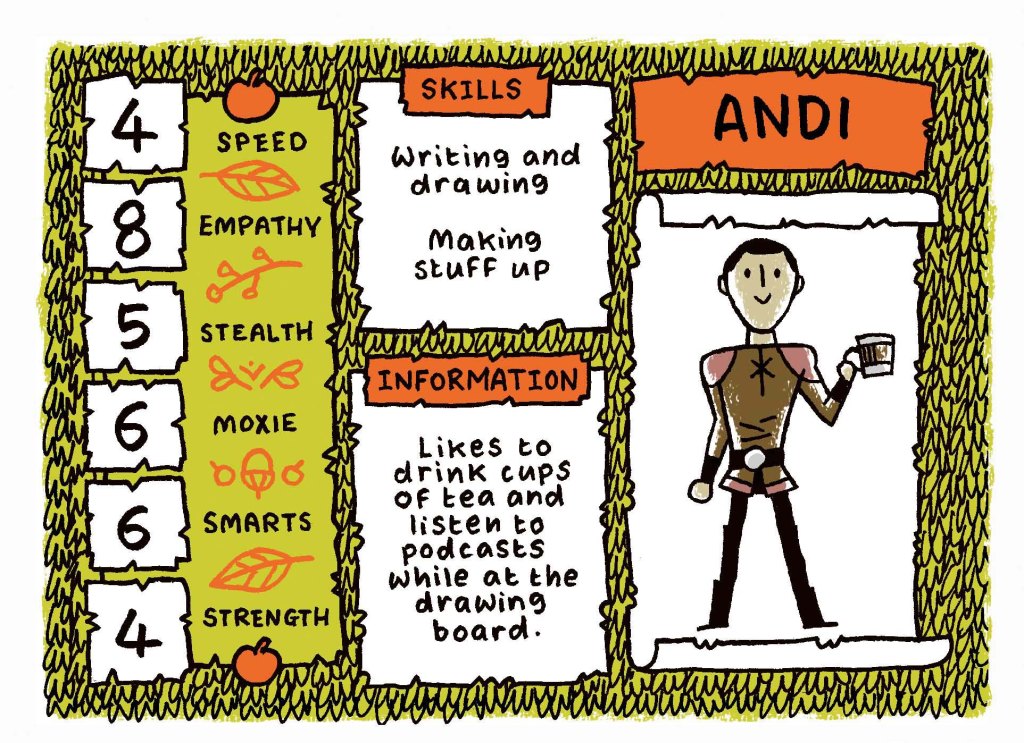 4 SPEED
8 EMPATHY
5 STEALTH
6 MOXIE
6 SMARTS
4 STRENGTH
SKILLS
Writing and
drawing
Making
stuff up
INFORMATION
Likes to
drink cups
of tea and
listen to
podcasts
while at the
drawing
board.
ANDI